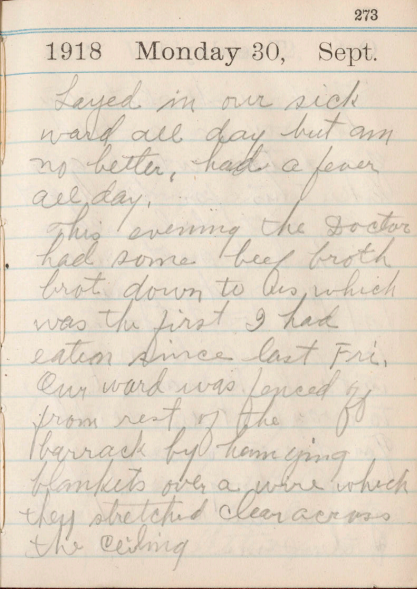 273
1918 Monday 30, Sept.
Layed in our sick
ward all day but am
no better, had a fever
all day.
This evening the Doctor
had some beef broth
brot down to us which
was the first I had
eaten since last Fri.
Our ward was fenced off
from rest of the
barrack by hanging
blankets over a wire which
they stretched clear across
the ceiling